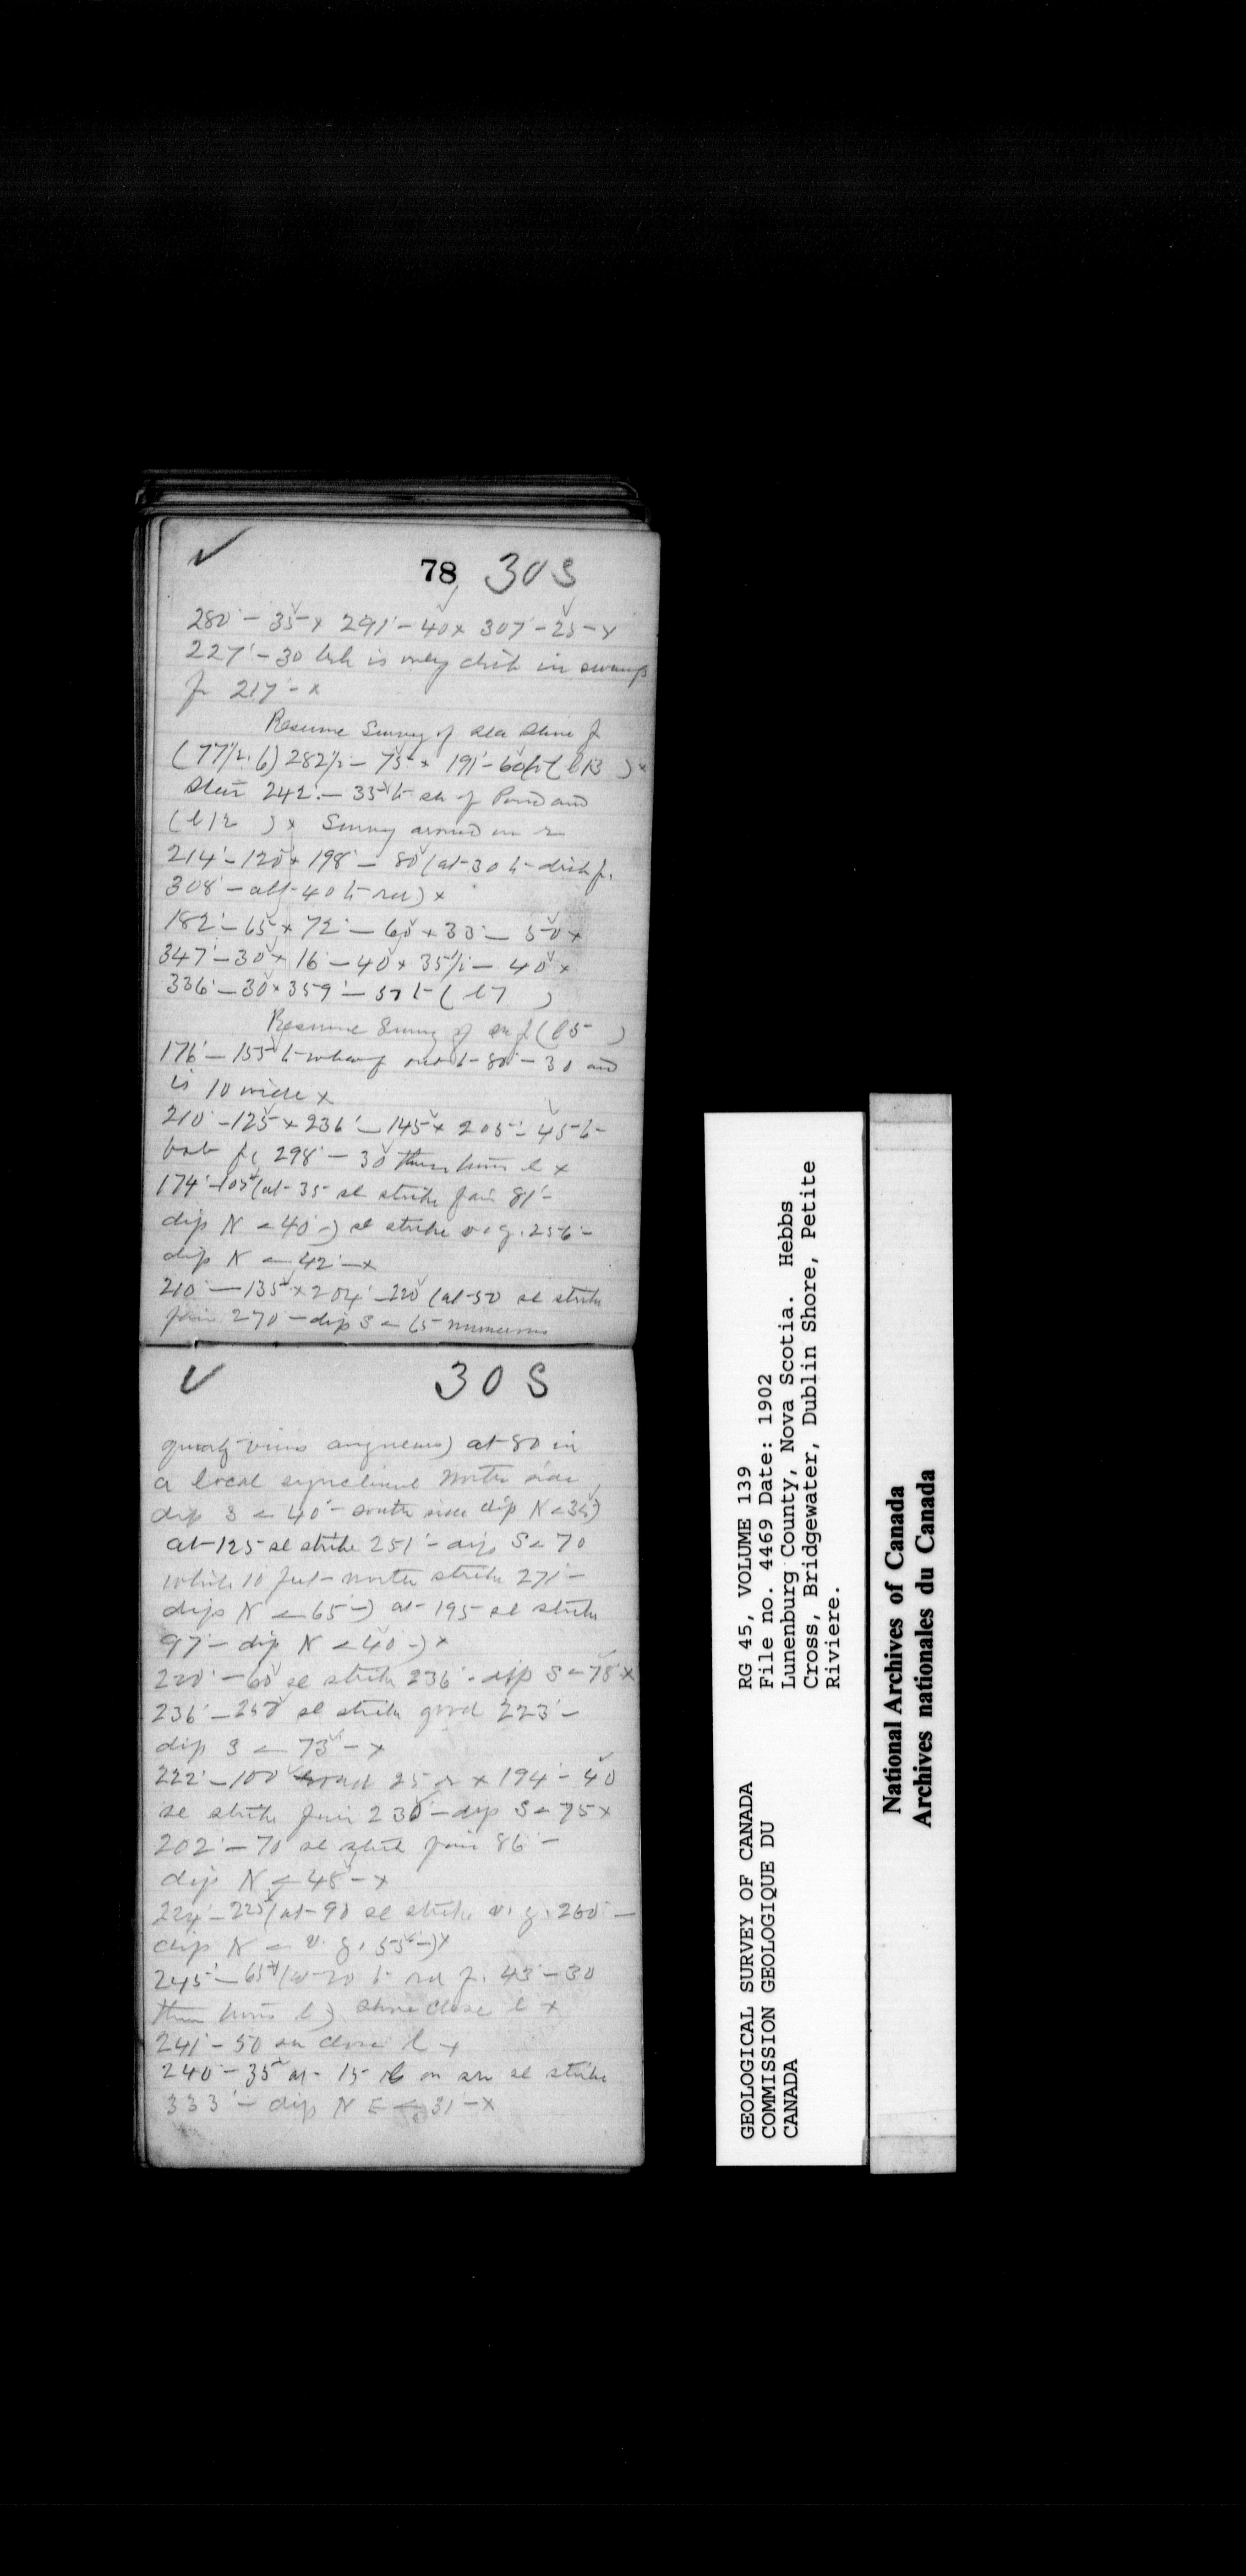 78 30 S
280° - 35 x 291° - 40 x 307° - 25 - x
227° - 30 is only ditch in swamp
fr 217° - x
Resume Survey of sea shore f
(77½, 6) 282½ - 75 x 191° - 60 (l 13 ) x
242° - 35 of Pond and
(l 12 ) x Survey around in
214° - 120 x 198° - 80 (at 30 ditch f.
308° - 40 rd) x
182° - 65 x 72° - 60 x 33° - 50 x
347° - 30 x 16° - 40 x 35½ - 40 x
336° - 30 x 359° - 57 (l 7 )
Resume Survey of f (l 5 )
176° - 155 wharf out 80° - 30 and
is 10 wide x
210° - 125 x 236° - 145 x 205° - 45
298° - 30 then l x
174° - 105 (at 35 sl strike fair 81° -
dip N < 40° -) sl strike v. g. 256° -
dip N < 42° - x
210° - 135 x 204° - 220 (at 50 sl strike
fair 270 - dip S < 65 - numerous
30 S
quartz veins ) at 80 in
a local synclinal North side
dip S < 40° - south side dip N < 35)
at 125 sl strike 251° - dip S < 70
while 10 feet north strike 271° -
dips N < 65 -) at 195 sl strike
97° - dip N < 40 -) x
220° - 60 sl strike 236° - dip S < 78 x
236° - 250 sl strike good 223° -
dip S < 73° - x
222° - 100 25 x 194° - 40
sl strike fair 230 - dip S < 75 x
202° - 70 sl strike fair 86° -
dip N < 48 - x
224° - 225 (at 90 sl strike v. g. 260° -
dip N < v. g. 55° -) x
245° - 65 (at 20 rd f. 43° - 30
then l) shore close l x
241° - 50 close l x
240° - 35 at 15 on sl strike
333° - dip N E < 31° - x
GEOLOGICAL SURVEY OF CANADA
COMMISSION GEOLOGIQUE DU
CANADA
RG 45, VOLUME 139
File no. 4469 Date: 1902
Lunenburg County, Nova Scotia. Hebbs
Cross, Bridgewater, Dublin Shore, Petite
Riviere.
National Archives of Canada
Archives nationales du Canada